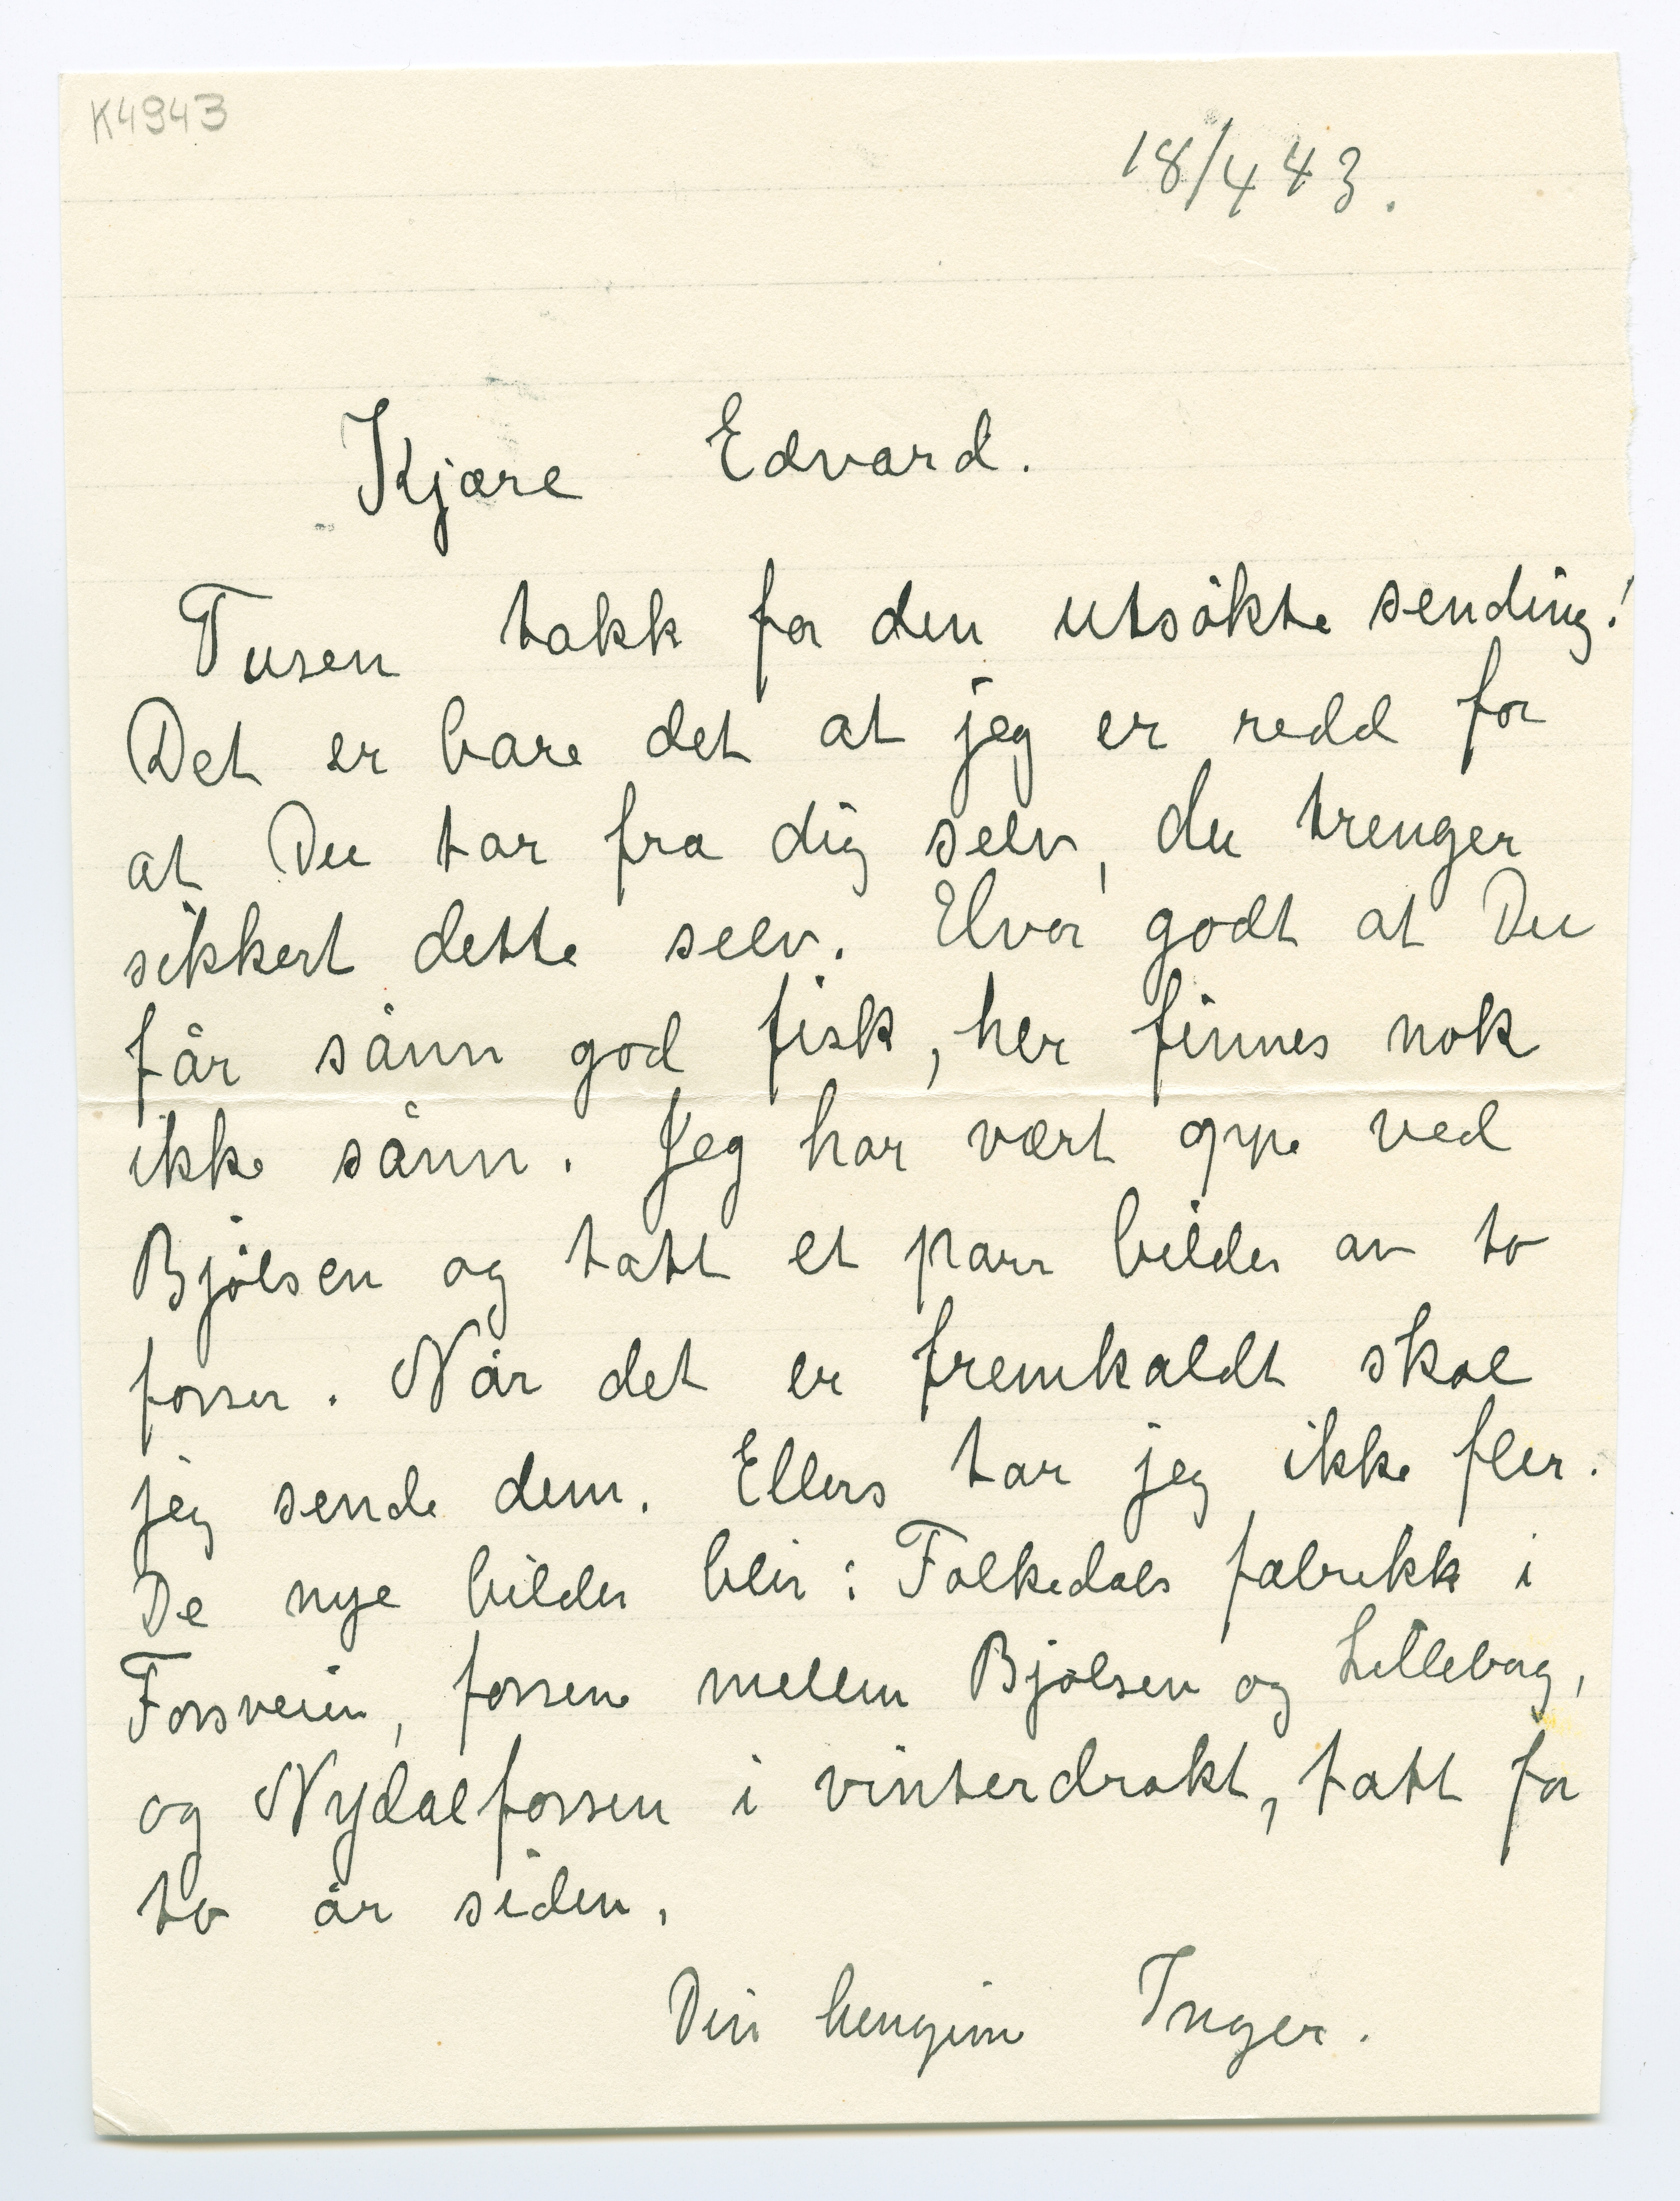 K4943
18/4 43.
Kjære Edvard.
Tusen takk for den utsökte sending!
Det er bare det at jeg er redd for
at Du tar fra dig selv, du trenger
sikkert dette selv. Hvor godt at Du
får sånn god fisk, her finnes nok
ikke sånn. Jeg har vært oppe ved
Bjölsen og tatt et parr bilder av to
fosser. Når det er fremkaldt skal
jeg sende dem. Ellers tar jeg ikke fler.
De nye bilder blir: Folkedals fabrikk i
Fossveien, fossene mellem Bjölsen og Lilleborg,
og Nydalfossen i vinterdrakt, tatt for
to år siden.
Din hengivne Inger.